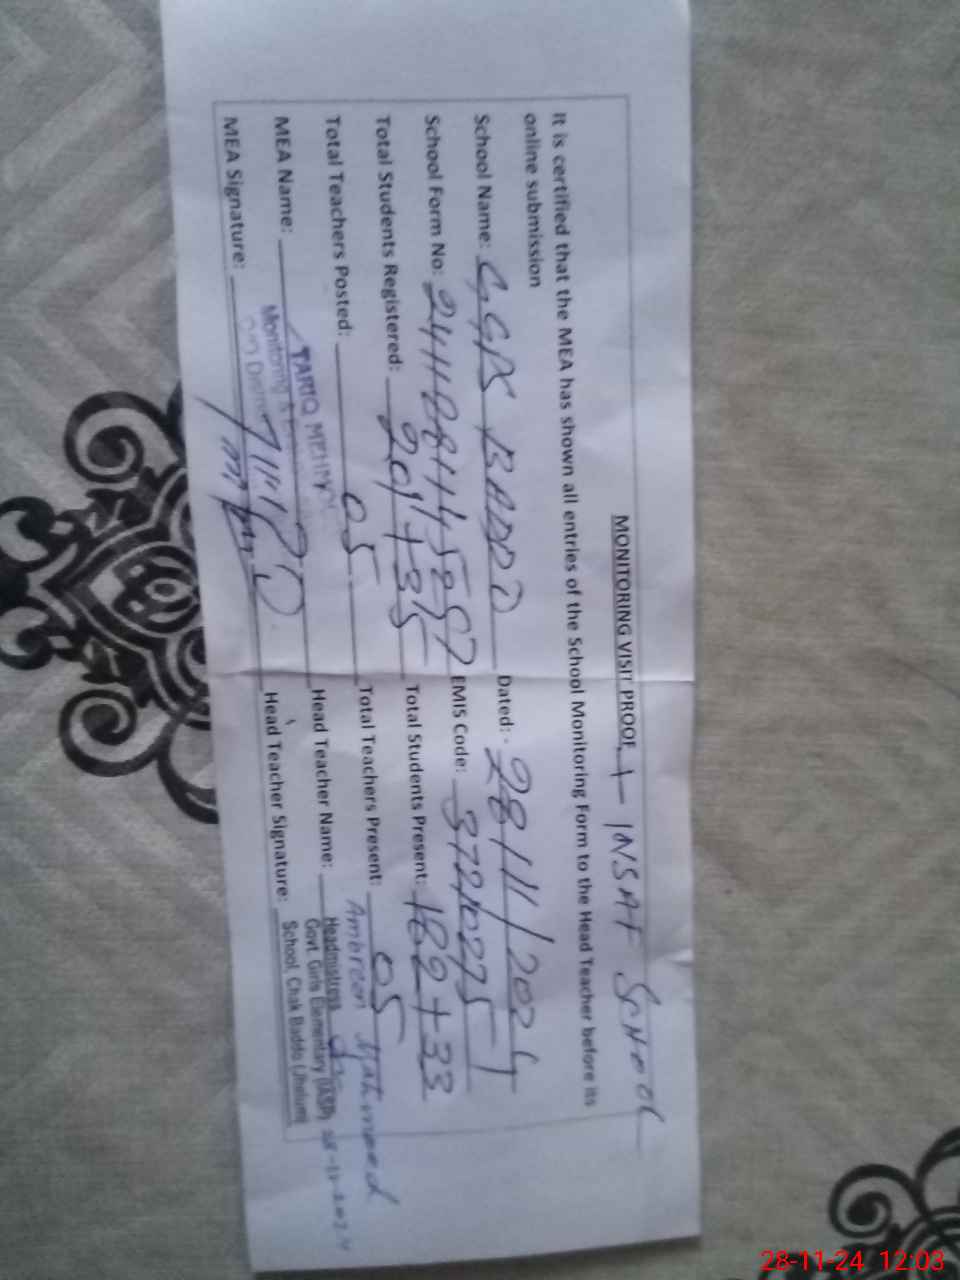 MONITORING VISIT PROOF + INSAF SCHOOL
It is certified that the MEA has shown all entries of the School Monitoring Form to the Head Teacher before its
online submission
School Name: GGPS BADDO Dated: - 28/11/2024
School Form No: EMIS Code: 37210275
Total Students Registered: 201+35 Total Students Present: 182+33
Total Teachers Posted: 05 Total Teachers Present: 05
MEA Name: TARIQ Head Teacher Name: Ambreen Mahmood
Monitoring &
MEA Signature: Head Teacher Signature:
Headmistress
Govt. Girls Elementary (IASP)
School, Chak Baddo (Jhelum)
28-11-2024
28-11-24 12:03